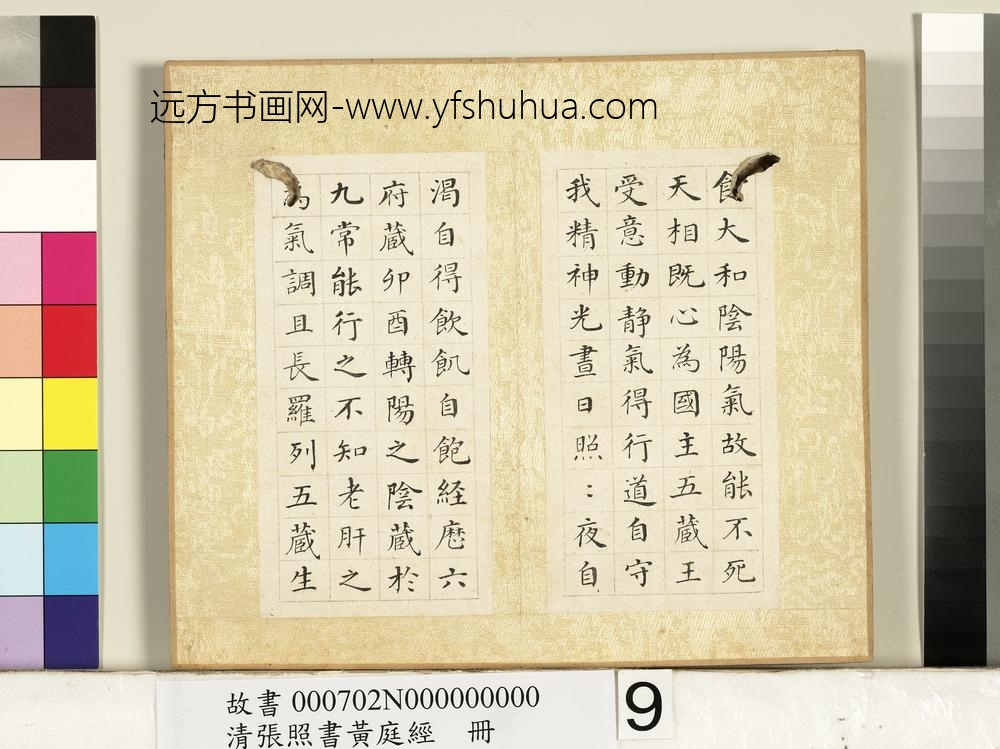 远方书画网-www.yfshuhua.com
食大和陰陽氣故能不死
天相既心為國主五蔵王
受意動静氣得行道自守
我精神光晝日照〻夜自
渇自得飲飢自飽経歴六
府蔵卯酉轉陽之陰蔵於
九常能行之不知老肝之
為氣調且長羅列五蔵生
故書 000702N000000000
清張照書黃庭經 冊
9